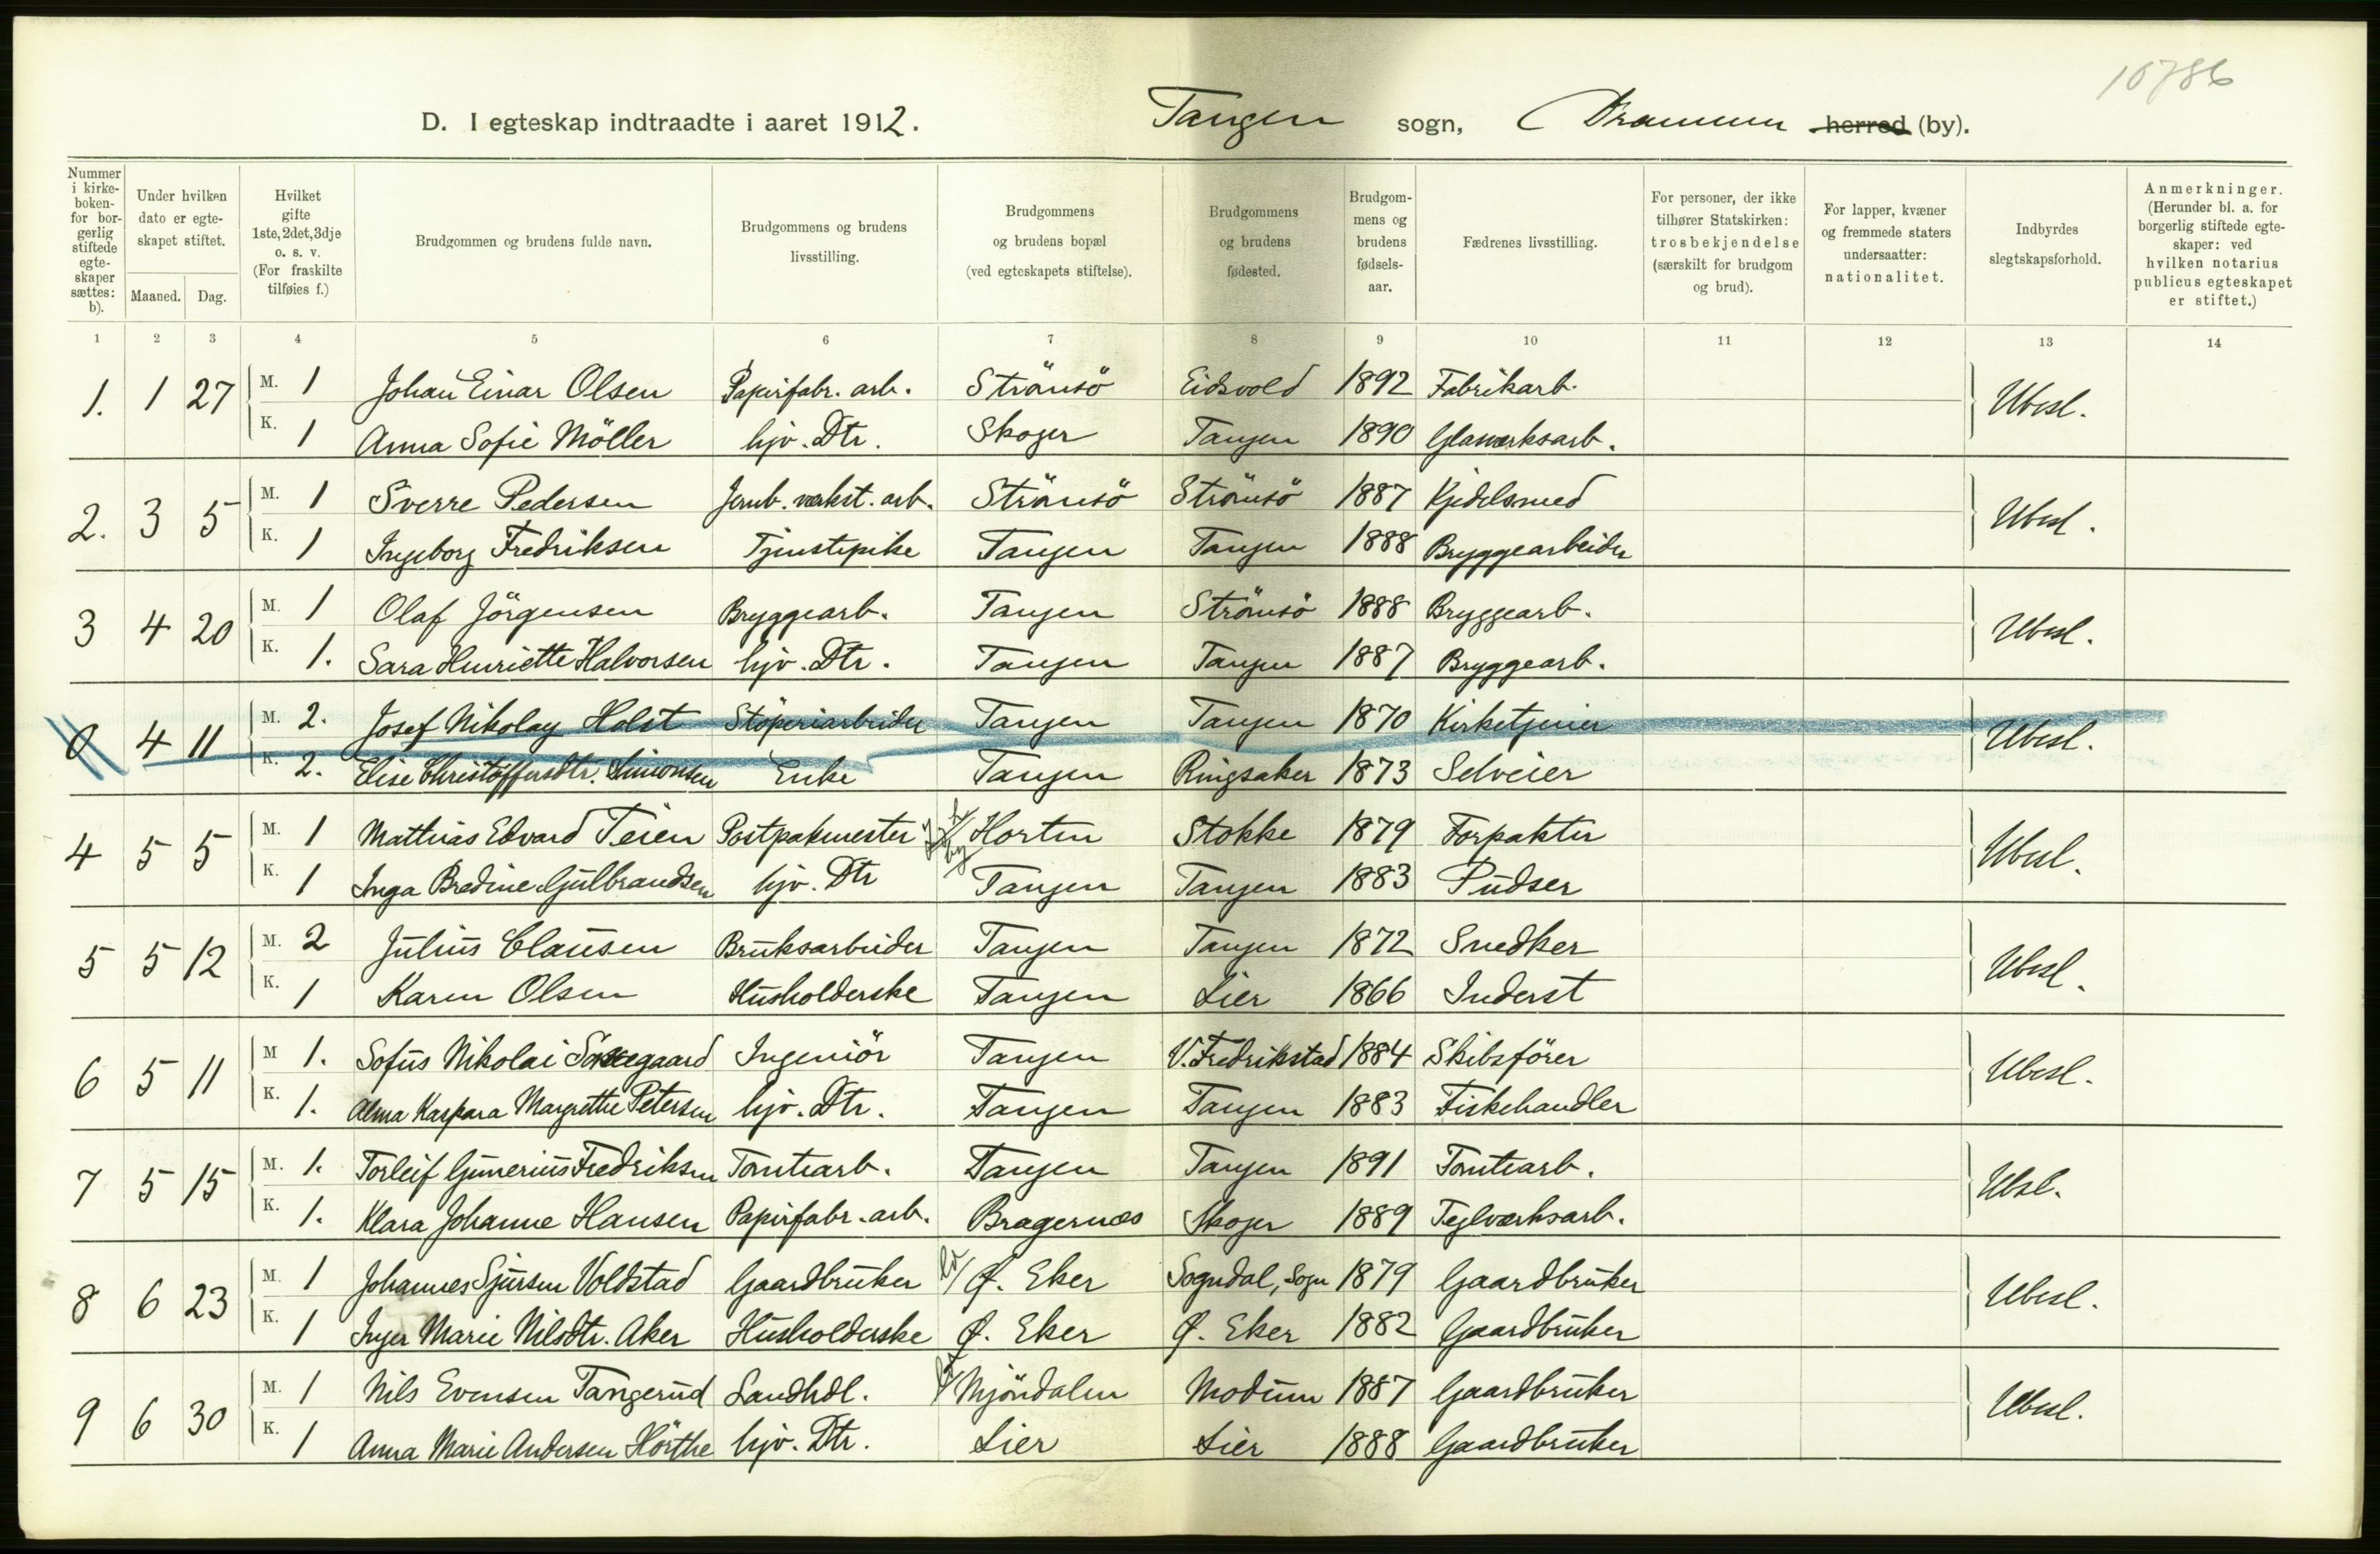 10786
D. I egteskap indtraadte i aaret 1912. Tangen sogn, Drammen herred (by).
Nummer i kirkeboken- for borgerlig stiftede egteskaper sættes: b).
Under hvilken dato er egteskapet stiftet.
Maaned. Dag.
Hvilket gifte 1ste, 2det, 3dje o. s. v. (For fraskilte tilføies f.)
Brudgommen og brudens fulde navn.
Brudgommens og brudens livsstilling.
Brudgommens og brudens bopæl (ved egteskapets stiftelse).
Brudgommens og brudens fødested.
Brudgommens og brudens fødselsaar.
Fædrenes livsstilling.
For personer, der ikke tilhører Statskirken: trosbekjendelse (særskilt for brudgom og brud).
For lapper, kvæner og fremmede staters undersaatter: nationalitet.
Indbyrdes slegtskapsforhold.
Anmerkninger. (Herunder bl. a. for borgerlig stiftede egteskaper: ved hvilken notarius publicus egteskapet er stiftet.)
1 2 3 4 5 6 7 8 9 10 11 12 13 14
1. 1 27 M. 1 Johan Einar Olsen Papirfabr. arb. Strömsö Eidsvold 1892 Fabrikarb. Ubesl.
K. 1 Anna Sofie Möller hjv. Dtr. Skoger Tangen 1890 Glasværksarb.
2. 3 5 M. 1 Sverre Pedersen Jernb. værkst. arb. Strömsö Strömsö 1887 Kjedelsmed Ubesl.
K. 1 Ingeborg Fredriksen Tjenstepike Tangen Tangen 1888 Bryggearbeider
3 4 20 M. 1 Olaf Jörgensen Bryggearb. Tangen Strömsö 1888 Bryggearb. Ubesl.
K. 1. Sara Henriette Halvorsen hjv. Dtr. Tangen Tangen 1887 Bryggearb.
0 4 11 M. 2. Josef Nikolay Holst Støperiarbeider Tangen Tangen 1870 Kirketjener Ubesl.
K. 2. Elise Christoffersdtr. Simonsen Enke Tangen Ringsaker 1873 Selveier
4 5 5 M. 1 Mathias Edvard Teien Postpakmester by Horten Stokke 1879 Forpakter Ubesl.
K. 1 Inga Bredine Gulbrandsen hjv. Dtr Tangen Tangen 1883 Pudser
5 5 12 M. 2 Julius Clausen Bruksarbeider Tangen Tangen 1872 Snedker Ubesl.
K. 1 Karen Olsen Husholderske Tangen Lier 1866 Inderst
6 5 11 M 1. Sofus Nikolai Ingeniör Tangen V. Fredrikstad 1884 Skibsförer Ubesl.
K. 1. Alma Kaspara Margrethe Petersen hjv. Dtr. Tangen Tangen 1883 Fiskehandler
7 5 15 M. 1. Torleif Gunerius Fredriksen Tomtearb. Tangen Tangen 1891 Tomtearb. Ubsl.
K. 1. Klara Johanne Hansen Papirfabr. arb. Bragernæs Skoger 1889 Teglværksarb.
8 6 23 M. 1 Johannes Sjursen Voldstad Gaardbruker Ø. Eker Sogndal, Sogn 1879 Gaardbruker Ubesl.
K. 1 Inger Marie Nilsdtr. Aker Husholderske Ø. Eker Ø. Eker 1882 Gaardbruker
9 6 30 M. 1 Nils Evensen Tangerud Landhdl. Mjöndalen Modum 1887 Gaardbruker Ubesl.
K. 1 Anna Marie Andersen Hörthe hjv. Dtr. Lier Lier 1888 Gaardbruker